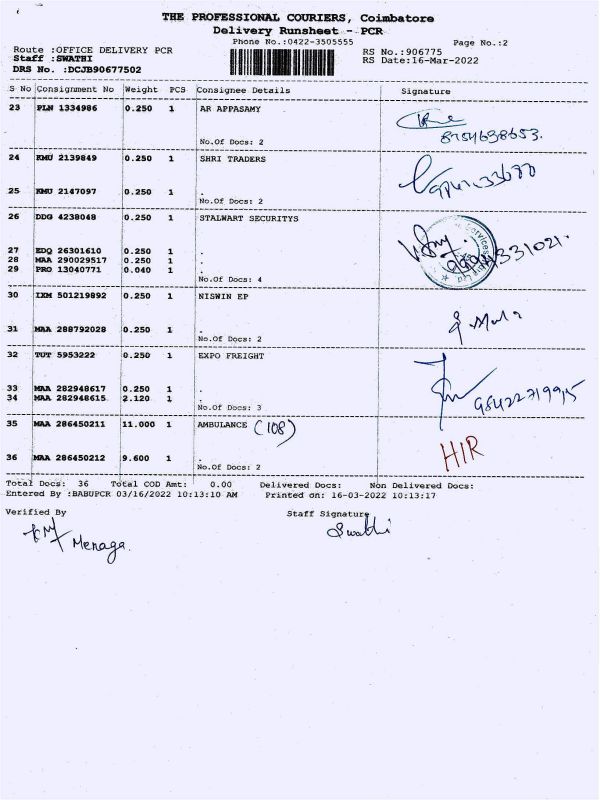 THE PROFESSIONAL COURIERS, Coimbatore
Delivery Runsheet - PCR
Phone No.:0422-3505555 Page No.:2
Route :OFFICE DELIVERY PCR RS No.:906775
Staff :SWATHI RS Date:16-Mar-2022
DRS No. :DCJB90677502
S No Consignment No Weight PCS Consignee Details Signature
23 PLN 1334986 0.250 1 AR APPASAMY
No.Of Docs: 2
24 KMU 2139849 0.250 1 SHRI TRADERS
25 KMU 2147097 0.250 1 .
No.Of Docs: 2
26 DDG 4238048 0.250 1 STALWART SECURITYS
27 EDQ 26301610 0.250 1 .
28 MAA 290029517 0.250 1 .
29 PRO 13040771 0.040 1 .
No.Of Docs: 4
30 IXM 501219892 0.250 1 NISWIN EP
31 MAA 288792028 0.250 1 .
No.Of Docs: 2
32 TUT 5953222 0.250 1 EXPO FREIGHT
33 MAA 282948617 0.250 1 .
34 MAA 282948615 2.120 1 .
No.Of Docs: 3
35 MAA 286450211 11.000 1 AMBULANCE (108)
HIR
36 MAA 286450212 9.600 1 .
No.Of Docs: 2
Total Docs: 36 Total COD Amt: 0.00 Delivered Docs: Non Delivered Docs:
Entered By :BABUPCR 03/16/2022 10:13:10 AM Printed on: 16-03-2022 10:13:17
Verified By Staff Signature
Menaga. Swathi